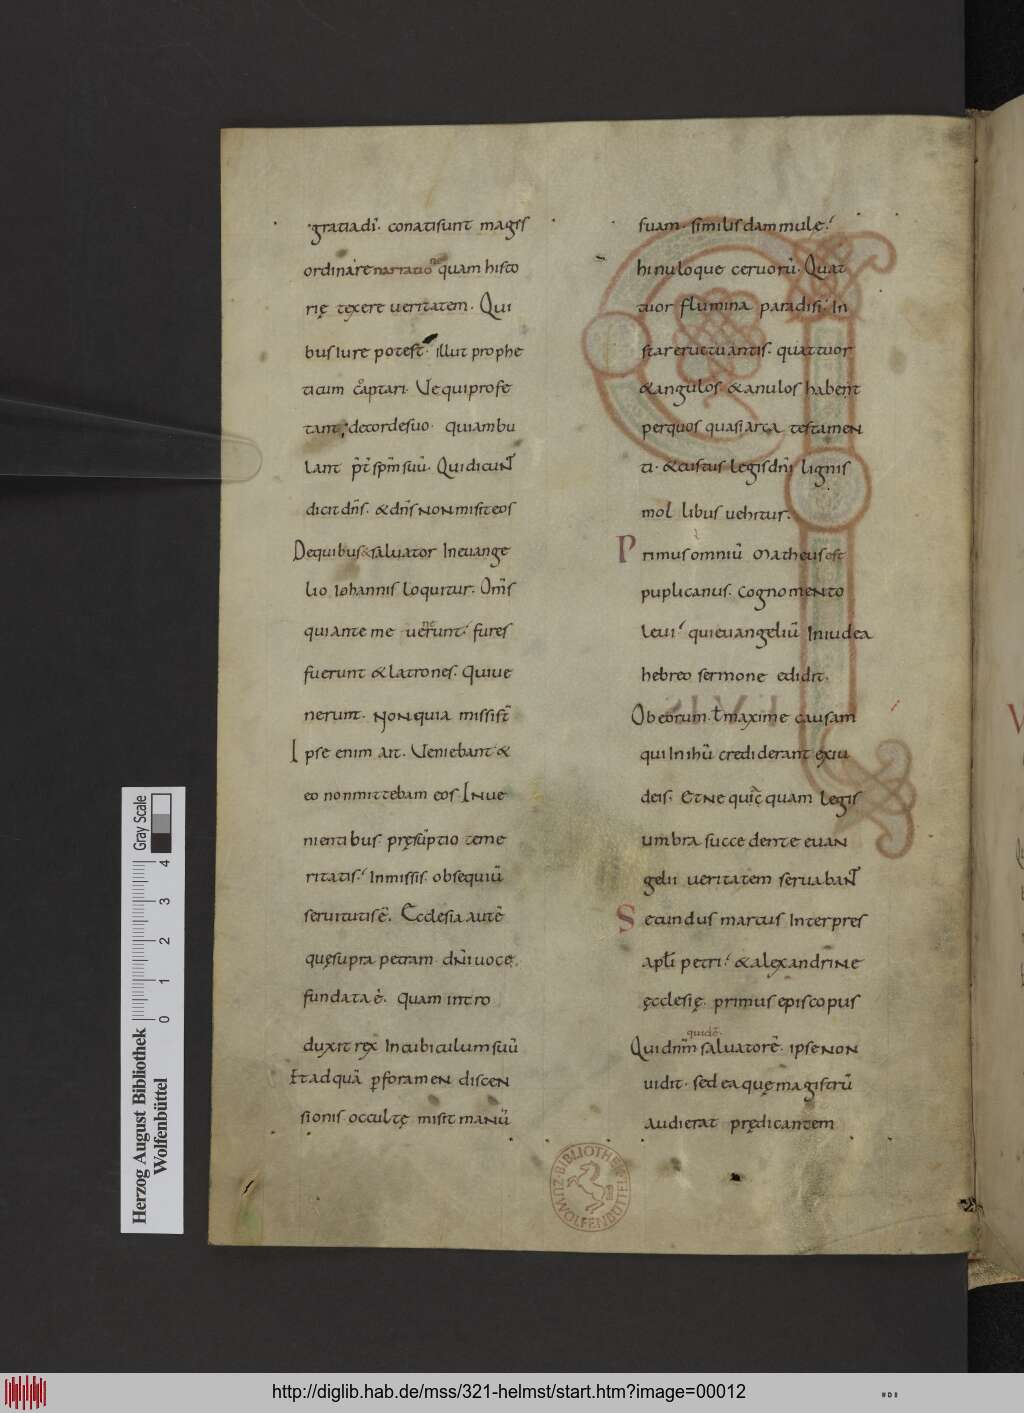 gratia dı̄. conati sunt magis
ordinare narratioñe quam histo
rię texere ueritatem. Qui
bus iure potest. illut prophe
ticum cōaptari. Ve qui profe
tant; de corde suo. qui ambu
lant p̄t sp̄m suū. Qui dicuNT
dicit dn̄s. & dn̄s NON misit eos
De quibus & saluator In euange
lio Iohannis loquitur. Om̄s
qui ante me uenerunt. fures
fuerunt & latrones. Qui ue
nerunt. NON quia missi st̄
Ipse enim ait. Veniebant &
eo non mittebam eos. INue
nientibus. pręsūptio teme
ritatis. In missis. obsequiū
seruitutis ē. Ecclesia autē
quę supra petram dn̄i uoce
fundata ē. quam intro
duxit rex In cubiculum suū
Et ad quā p foramen discen
sionis occultę misit manū
suam. similis dammulę.
hinuloque ceruorū. Quat
tuor flumina paradisi. In
star eructuantis. quattuor
& angulos. & anulos habent
per quos quasi arca testamen
ti. & custus legis dn̄i lignis
mol libus uehitur.
Primus omniū Matheus est
puplicanus. cognomento
leui. qui euangeliū In iudea
hebreo sermone edidit.
Ob eorum. ł maxime causam
qui In ihū crediderant ex iu
deis. Et Ne quic̄quam legis
umbra succedente euan
gelii ueritatem seruabaNT
Secundus marcus Interpres
apłi petri. & alexandriNe
ęcclesię. primus episcopus
quidē.
Qui dn̄m saluatorē. ipse NON
uidit. sed ea quę magistrū
audierat prędicantem
BIBLIOTHEK ZU WOLFENBÜTTEL
Herzog August Bibliothek
Wolfenbüttel
Gray Scale
0 1 2 3 4
http://diglib.hab.de/mss/321-helmst/start.htm?image=00012